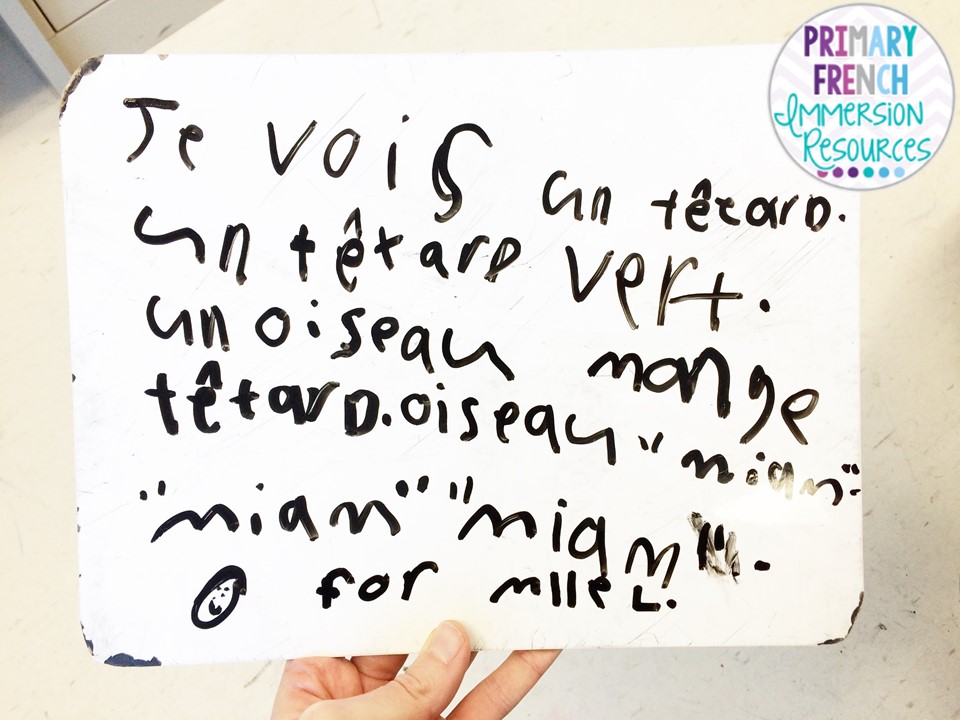 PRIMARY
FRENCH
IMMERSION
RESOURCES
Je vois un têtard.
un têtard vert.
un oiseau mange
têtard. oiseau "miam"
"miam" "miam".
for mlle L.